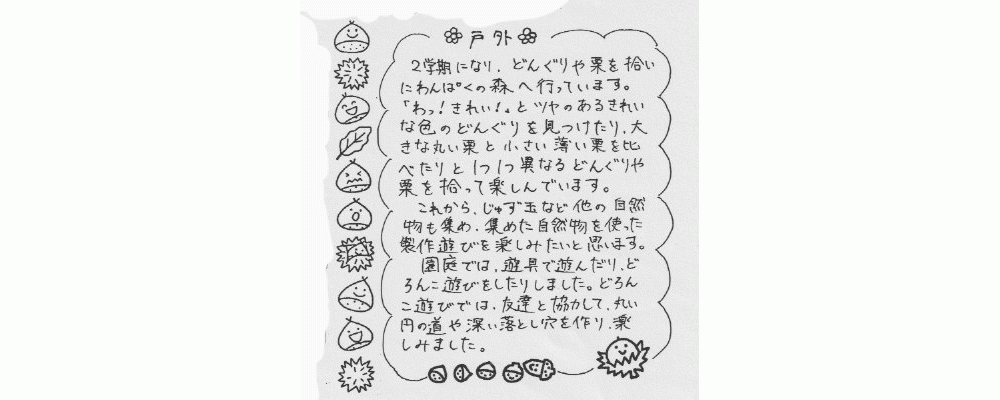 戸外
2学期になり、どんぐりや栗を拾い
にわんぱくの森へ行っています。
「わっ!きれい!」とツヤのあるきれい
な色のどんぐりを見つけたり、大
きな丸い栗と小さい薄い栗を比
べたりと1つ1つ異なるどんぐりや
栗を拾って楽しんでいます。
これから、じゅず玉など他の自然
物も集め、集めた自然物を使った
製作遊びを楽しみたいと思います。
園庭では、遊具で遊んだり、ど
ろんこ遊びをしたりしました。どろん
こ遊びでは、友達と協力して、丸い
円の道や深い落とし穴を作り、楽
しみました。